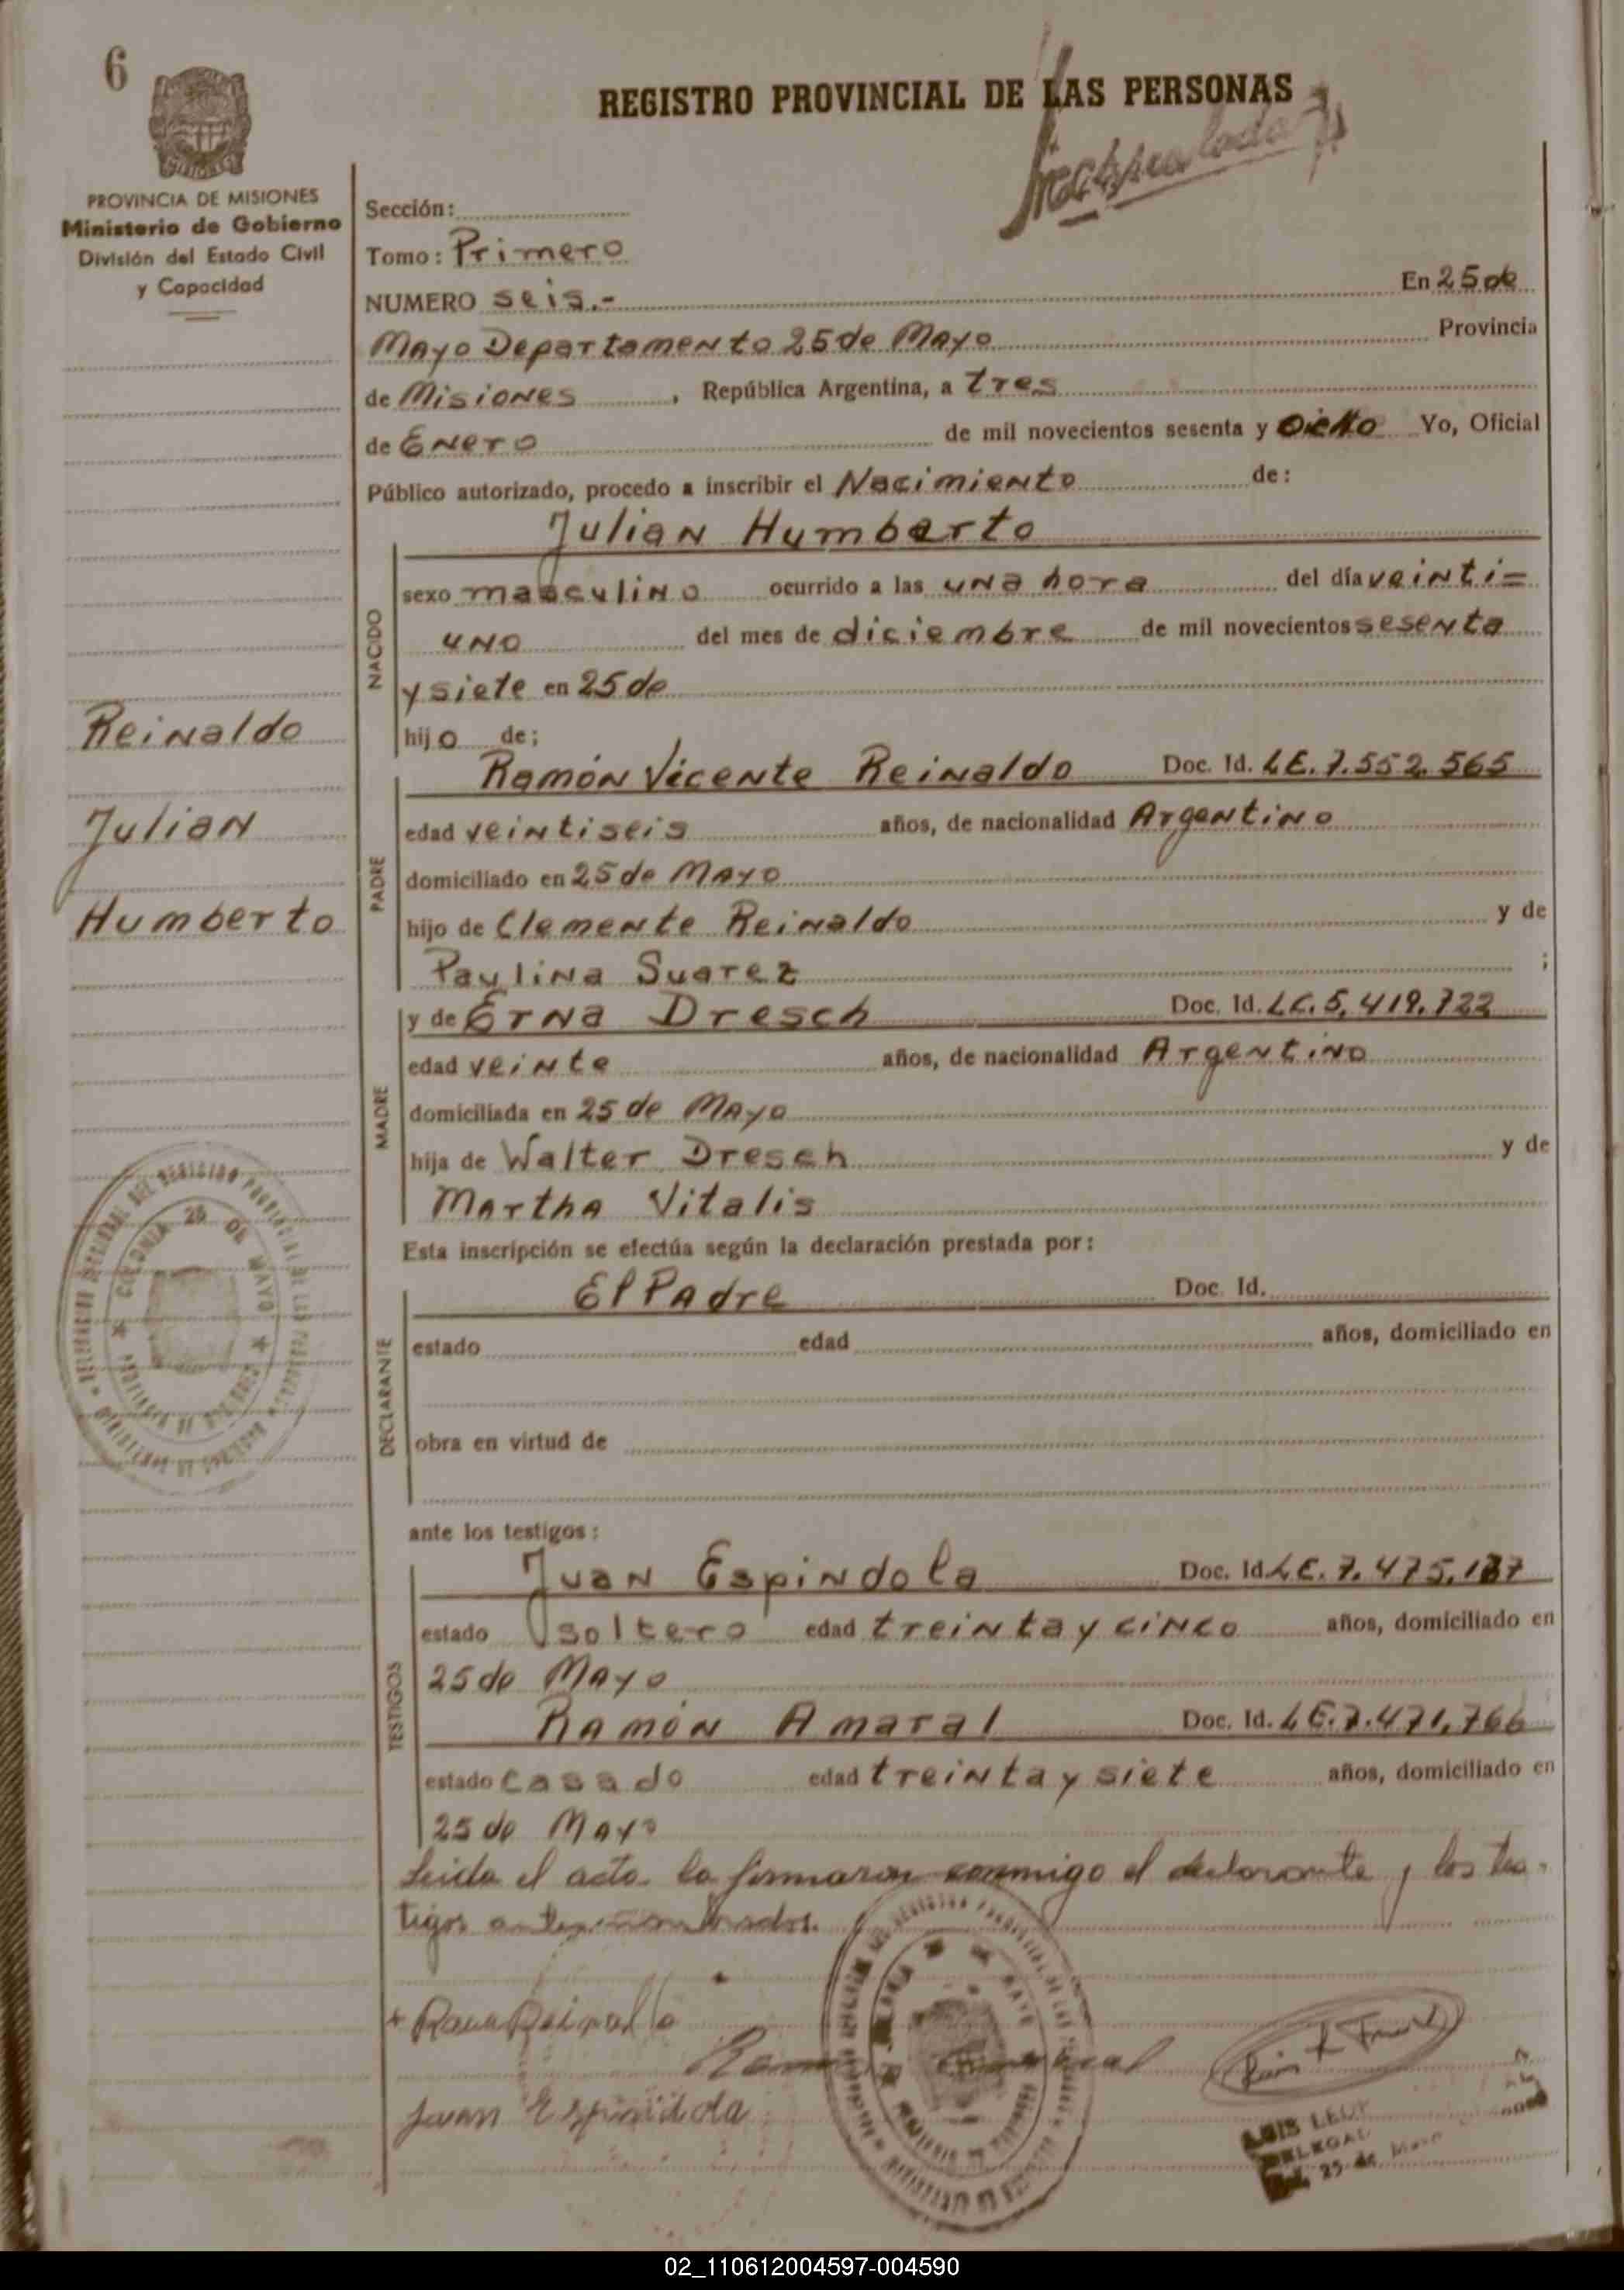 6
REGISTRO PROVINCIAL DE LAS PERSONAS
PROVINCIA DE MISIONES
Ministerio de Gobierno
División del Estado Civil
y Capacidad
Sección:
Tomo: Primero
NUMERO seis.- En 25 de
Mayo Departamento 25 de Mayo Provincia
de Misiones, República Argentina, a tres
de Enero de mil novecientos sesenta y ocho Yo, Oficial
Público autorizado, procedo a inscribir el Nacimiento de:
Julian Humberto
NACIDO
sexo masculino ocurrido a las una hora del día veinti=
uno del mes de diciembre de mil novecientos sesenta
y siete en 25 de
hijo de;
Reinaldo
Julian
Humberto
PADRE
Ramón Vicente Reinaldo Doc. Id. LE. 7.552.565
edad veintiseis años, de nacionalidad Argentino
domiciliado en 25 de Mayo
hijo de Clemente Reinaldo y de
Paulina Suarez ;
MADRE
y de Erna Dresch Doc. Id. LC. 5.419.722
edad veinte años, de nacionalidad Argentino
domiciliada en 25 de Mayo
hija de Walter Dresch y de
Martha Vitalis
Esta inscripción se efectúa según la declaración prestada por:
DECLARANTE
El Padre Doc. Id.
estado edad años, domiciliado en
obra en virtud de
ante los testigos:
TESTIGOS
Juan Espindola Doc. Id. LE. 7.475.187
estado soltero edad treinta y cinco años, domiciliado en
25 de Mayo
Ramón Amaral Doc. Id. LE. 7.471.766
estado casado edad treinta y siete años, domiciliado en
25 de Mayo
Leida el acta la firmaron conmigo el declarante y los tes-
tigos antes nombrados.
COLONIA 25 DE MAYO
PROVINCIA DE MISIONES
Juan Espindola
LUIS
25 de Mayo
02_110612004597-004590